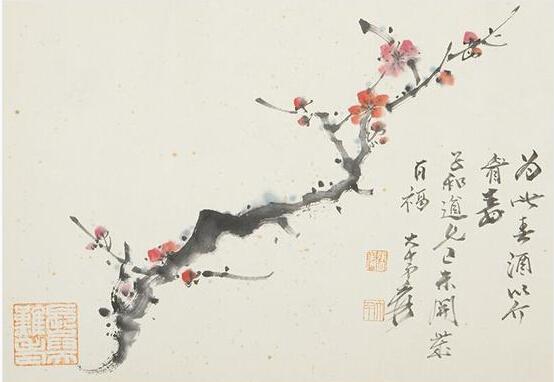 為此春酒以介
眉壽
子和道兄己未開歲
百福 大千弟爰